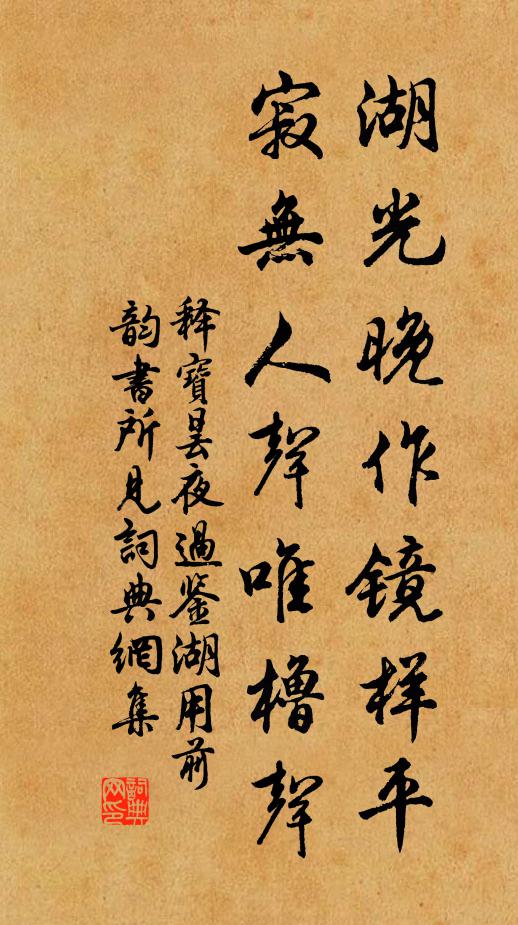 湖光晚作镜样平
寂無人聲唯櫓聲
释寶曇夜過鉴湖用前
韵書所見詞典網集
詞典
网印